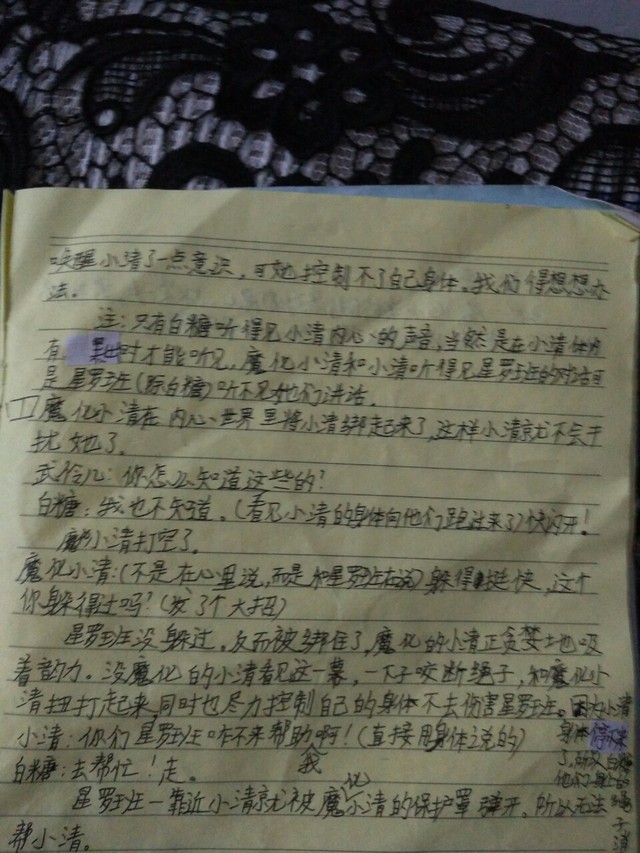 唤醒小清了一点意识，可她控制不了自己身体。我们得想想办
法。
注：只有白糖听得见小清内心的声音，当然是在小清体内
有 时才能听见，魔化小清和小清听得见星罗班的对话可
是星罗班(除白糖)听不见她们讲话。
魔化小清在内心世界里将小清绑起来了，这样小清就不会干
扰她了。
武崧儿：你怎么知道这些的？
白糖：我也不知道。(看见小清的身体向他们跑过来了)快闪开！
魔化小清打空了。
魔化小清：(不是在心里说，而是和星罗班在说)躲得挺快，这个
你躲得过吗？(发了个大招)
星罗班没躲过。反而被绑住了，魔化的小清正贪婪地吸
着韵力。没魔化的小清看见这一幕，一下子咬断绳子，和魔化小
清扭打起来，同时也尽力控制自己的身体不去伤害星罗班。因为小清
身体停下来
了，所以白糖
他们身上的绳
子消
小清：你们星罗班咋不来帮助我啊！(直接用身体之说的)
白糖：去帮忙！走。
星罗班一靠近小清就被魔化小清的保护罩弹开，所以无法
帮小清。